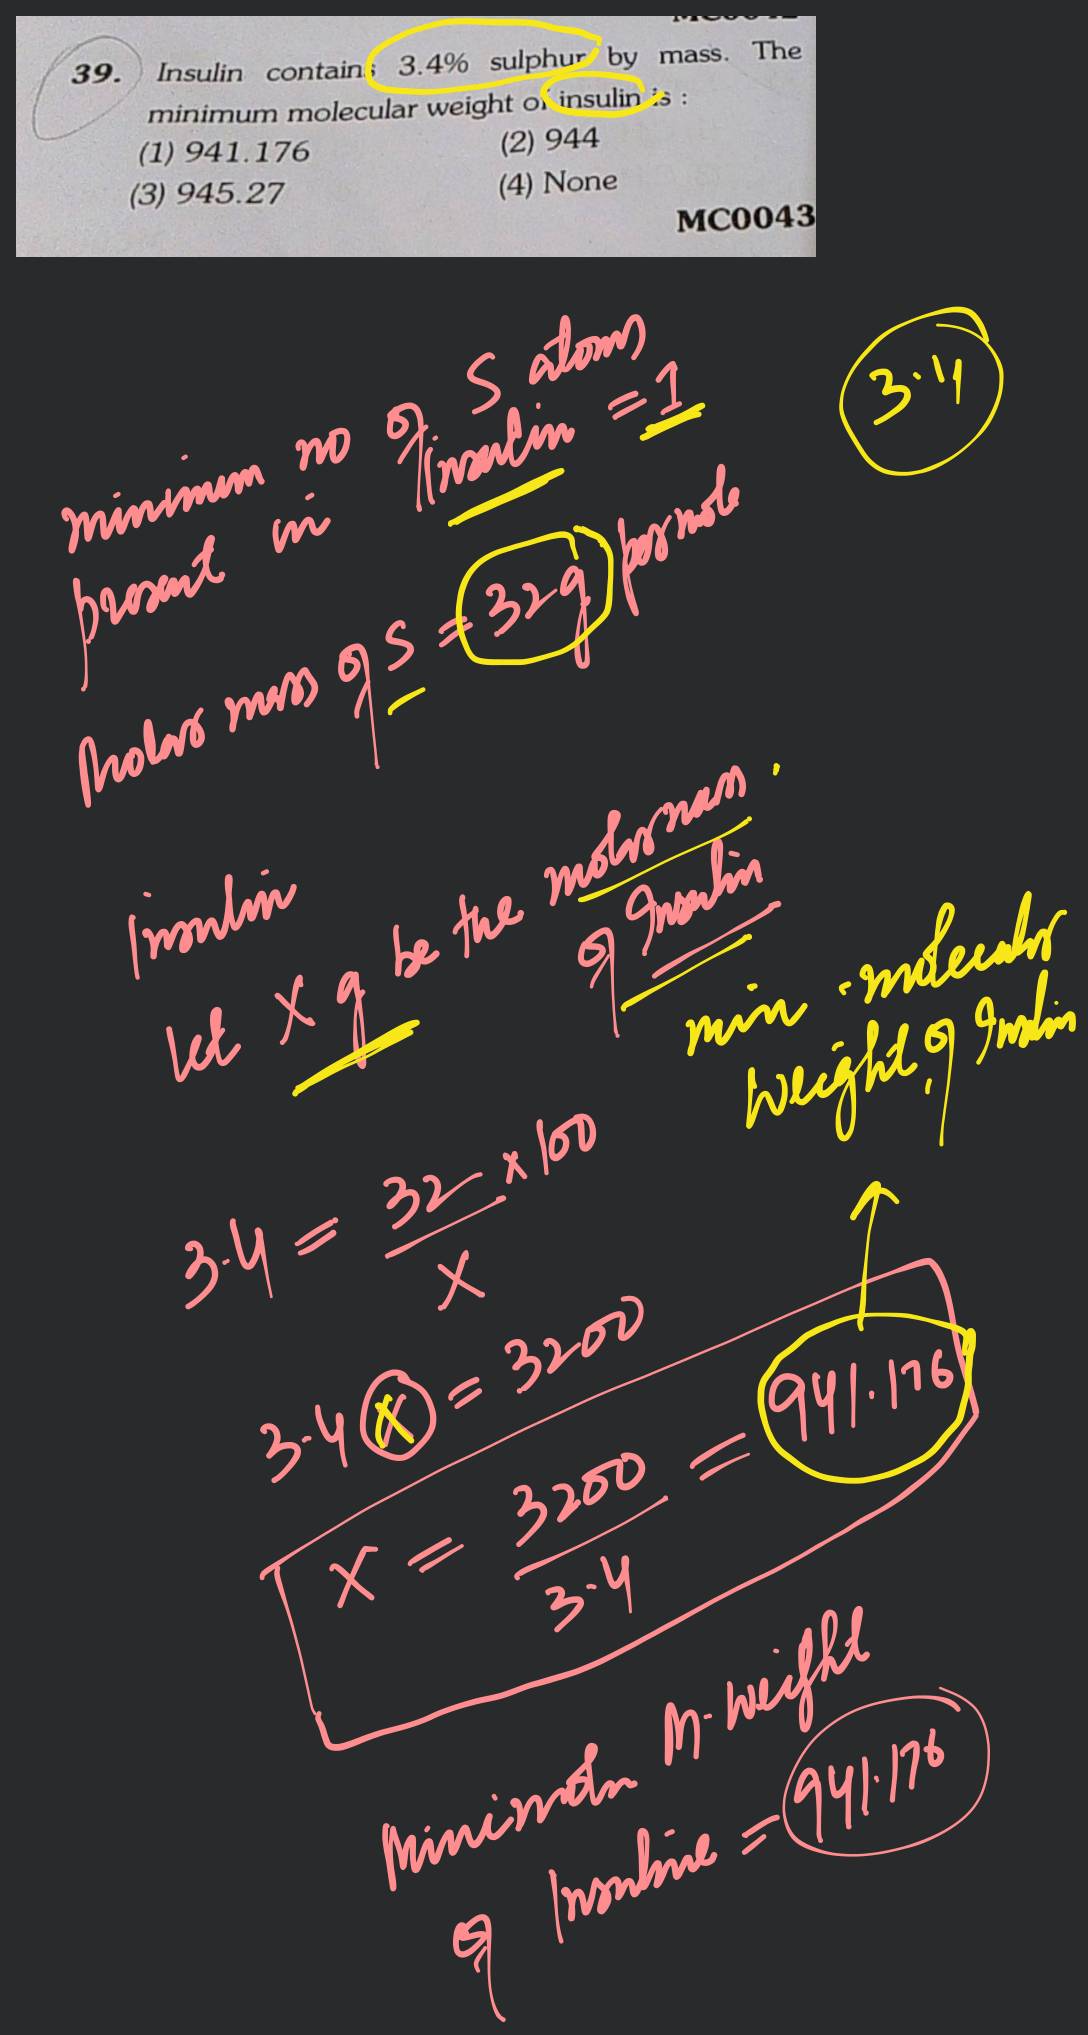 39. Insulin contains 3.4% sulphur by mass. The
minimum molecular weight of insulin is :
(1) 941.176 (2) 944
(3) 945.27 (4) None
MC0043
3.4
minimum no of S atoms
present in Insulin = 1
Molar mass of S = 32g per mole
Insulin
Let X g be the molar mass
of Insulin
min molecular
weight of Insulin
3.4 = 32 × 100
X
3.4 X = 3200
X = 3200 = 941.176
3.4
M. weight
of = 941.176